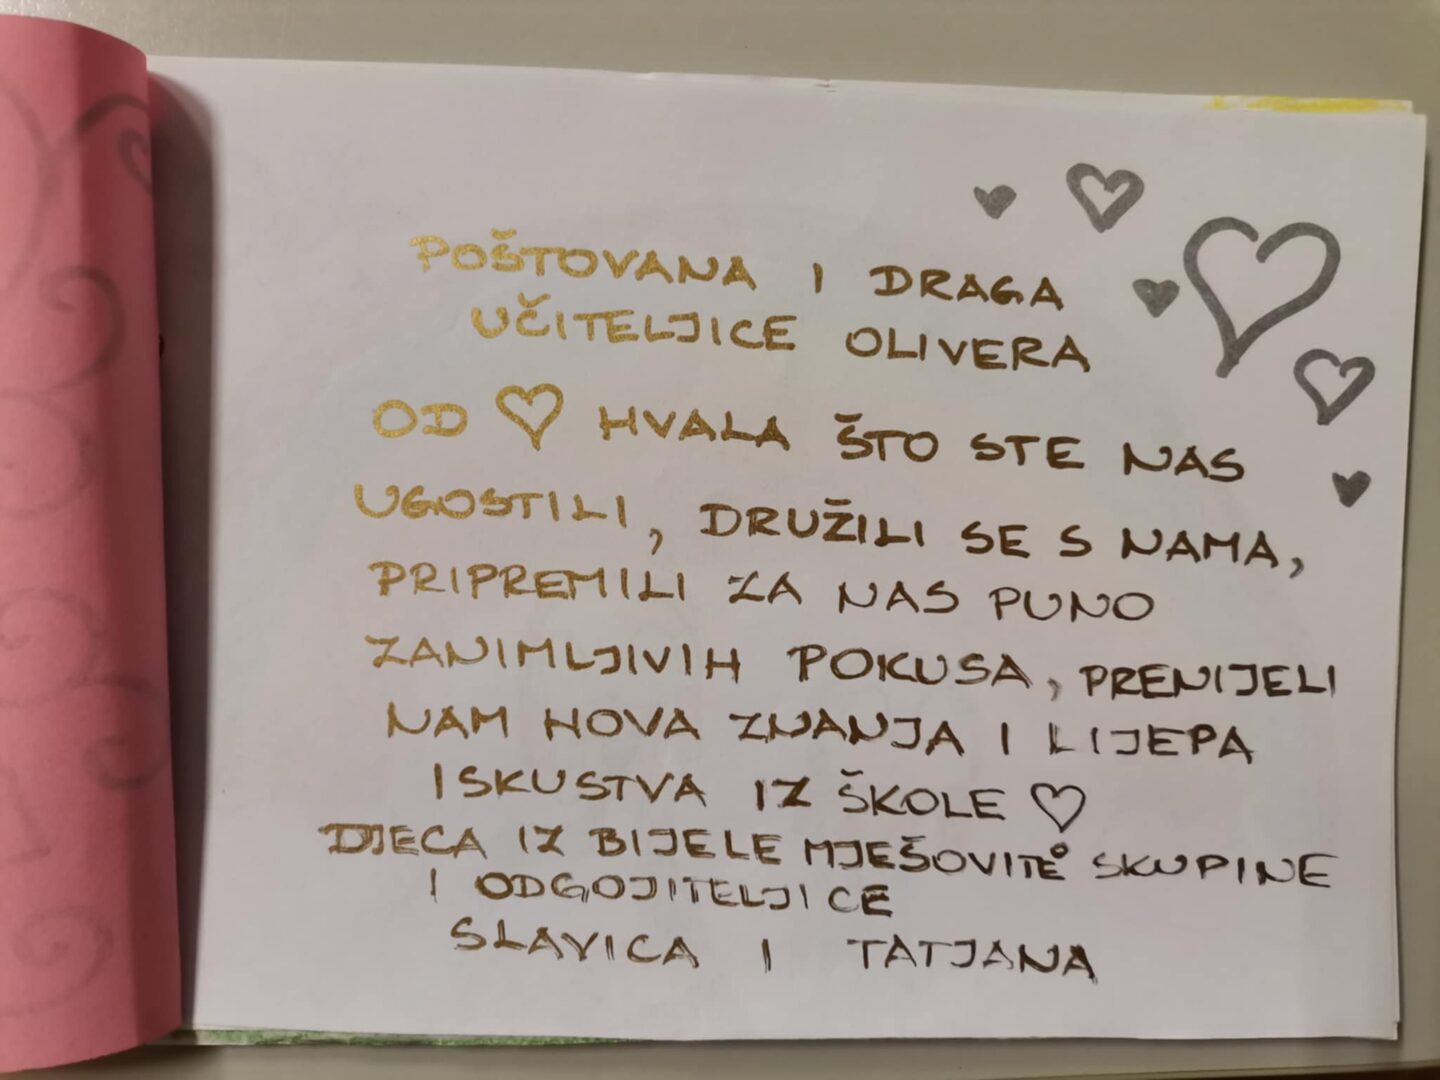 POŠTOVANA I DRAGA
UČITELJICE OLIVERA
OD ♡ HVALA ŠTO STE NAS
UGOSTILI, DRUŽILI SE S NAMA,
PRIPREMILI ZA NAS PUNO
ZANIMLJIVIH POKUSA, PRENIJELI
NAM NOVA ZNANJA I LIJEPA
ISKUSTVA IZ ŠKOLE ♡
DJECA IZ BIJELE MJEŠOVITE SKUPINE
I ODGOJITELJICE
SLAVICA I TATJANA